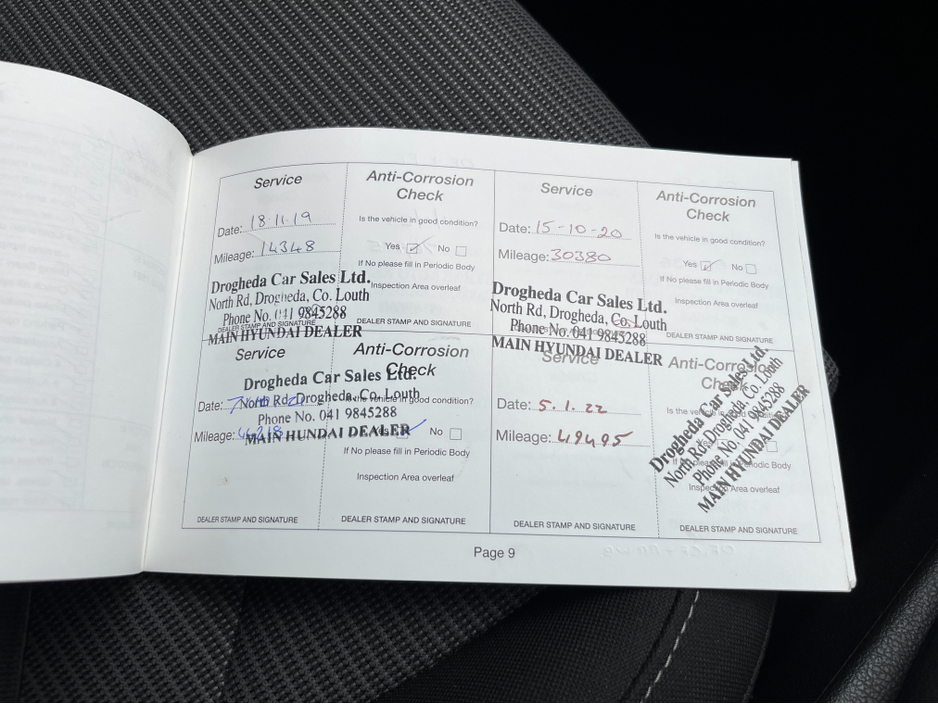 Service
Anti-Corrosion
Check
Date: 18.11.19
Is the vehicle in good condition?
Mileage: 14348
Yes No
If No please fill in Periodic Body
Inspection Area overleaf
Drogheda Car Sales Ltd.
North Rd, Drogheda, Co. Louth
Phone No. 041 9845288
MAIN HYUNDAI DEALER
DEALER STAMP AND SIGNATURE
DEALER STAMP AND SIGNATURE
Service
Anti-Corrosion
Check
Date: 15-10-20
Is the vehicle in good condition?
Mileage: 30380
Yes No
If No please fill in Periodic Body
Inspection Area overleaf
Drogheda Car Sales Ltd.
North Rd, Drogheda, Co. Louth
Phone No. 041 9845288
MAIN HYUNDAI DEALER
DEALER STAMP AND SIGNATURE
Service
Anti-Corrosion
Check
Drogheda Car Sales Ltd.
Date:
North Rd, Drogheda, Co. Louth
Is the vehicle in good condition?
Phone No. 041 9845288
Mileage:
MAIN HUNDAI DEALER
Yes No
If No please fill in Periodic Body
Inspection Area overleaf
DEALER STAMP AND SIGNATURE
DEALER STAMP AND SIGNATURE
Service
Anti-Corrosion
Check
Date: 5.1.22
Mileage: 49495
Drogheda Car Sales Ltd.
North Rd, Drogheda, Co. Louth
Phone No. 041 9845288
MAIN HYUNDAI DEALER
Inspection Area overleaf
DEALER STAMP AND SIGNATURE
DEALER STAMP AND SIGNATURE
Page 9